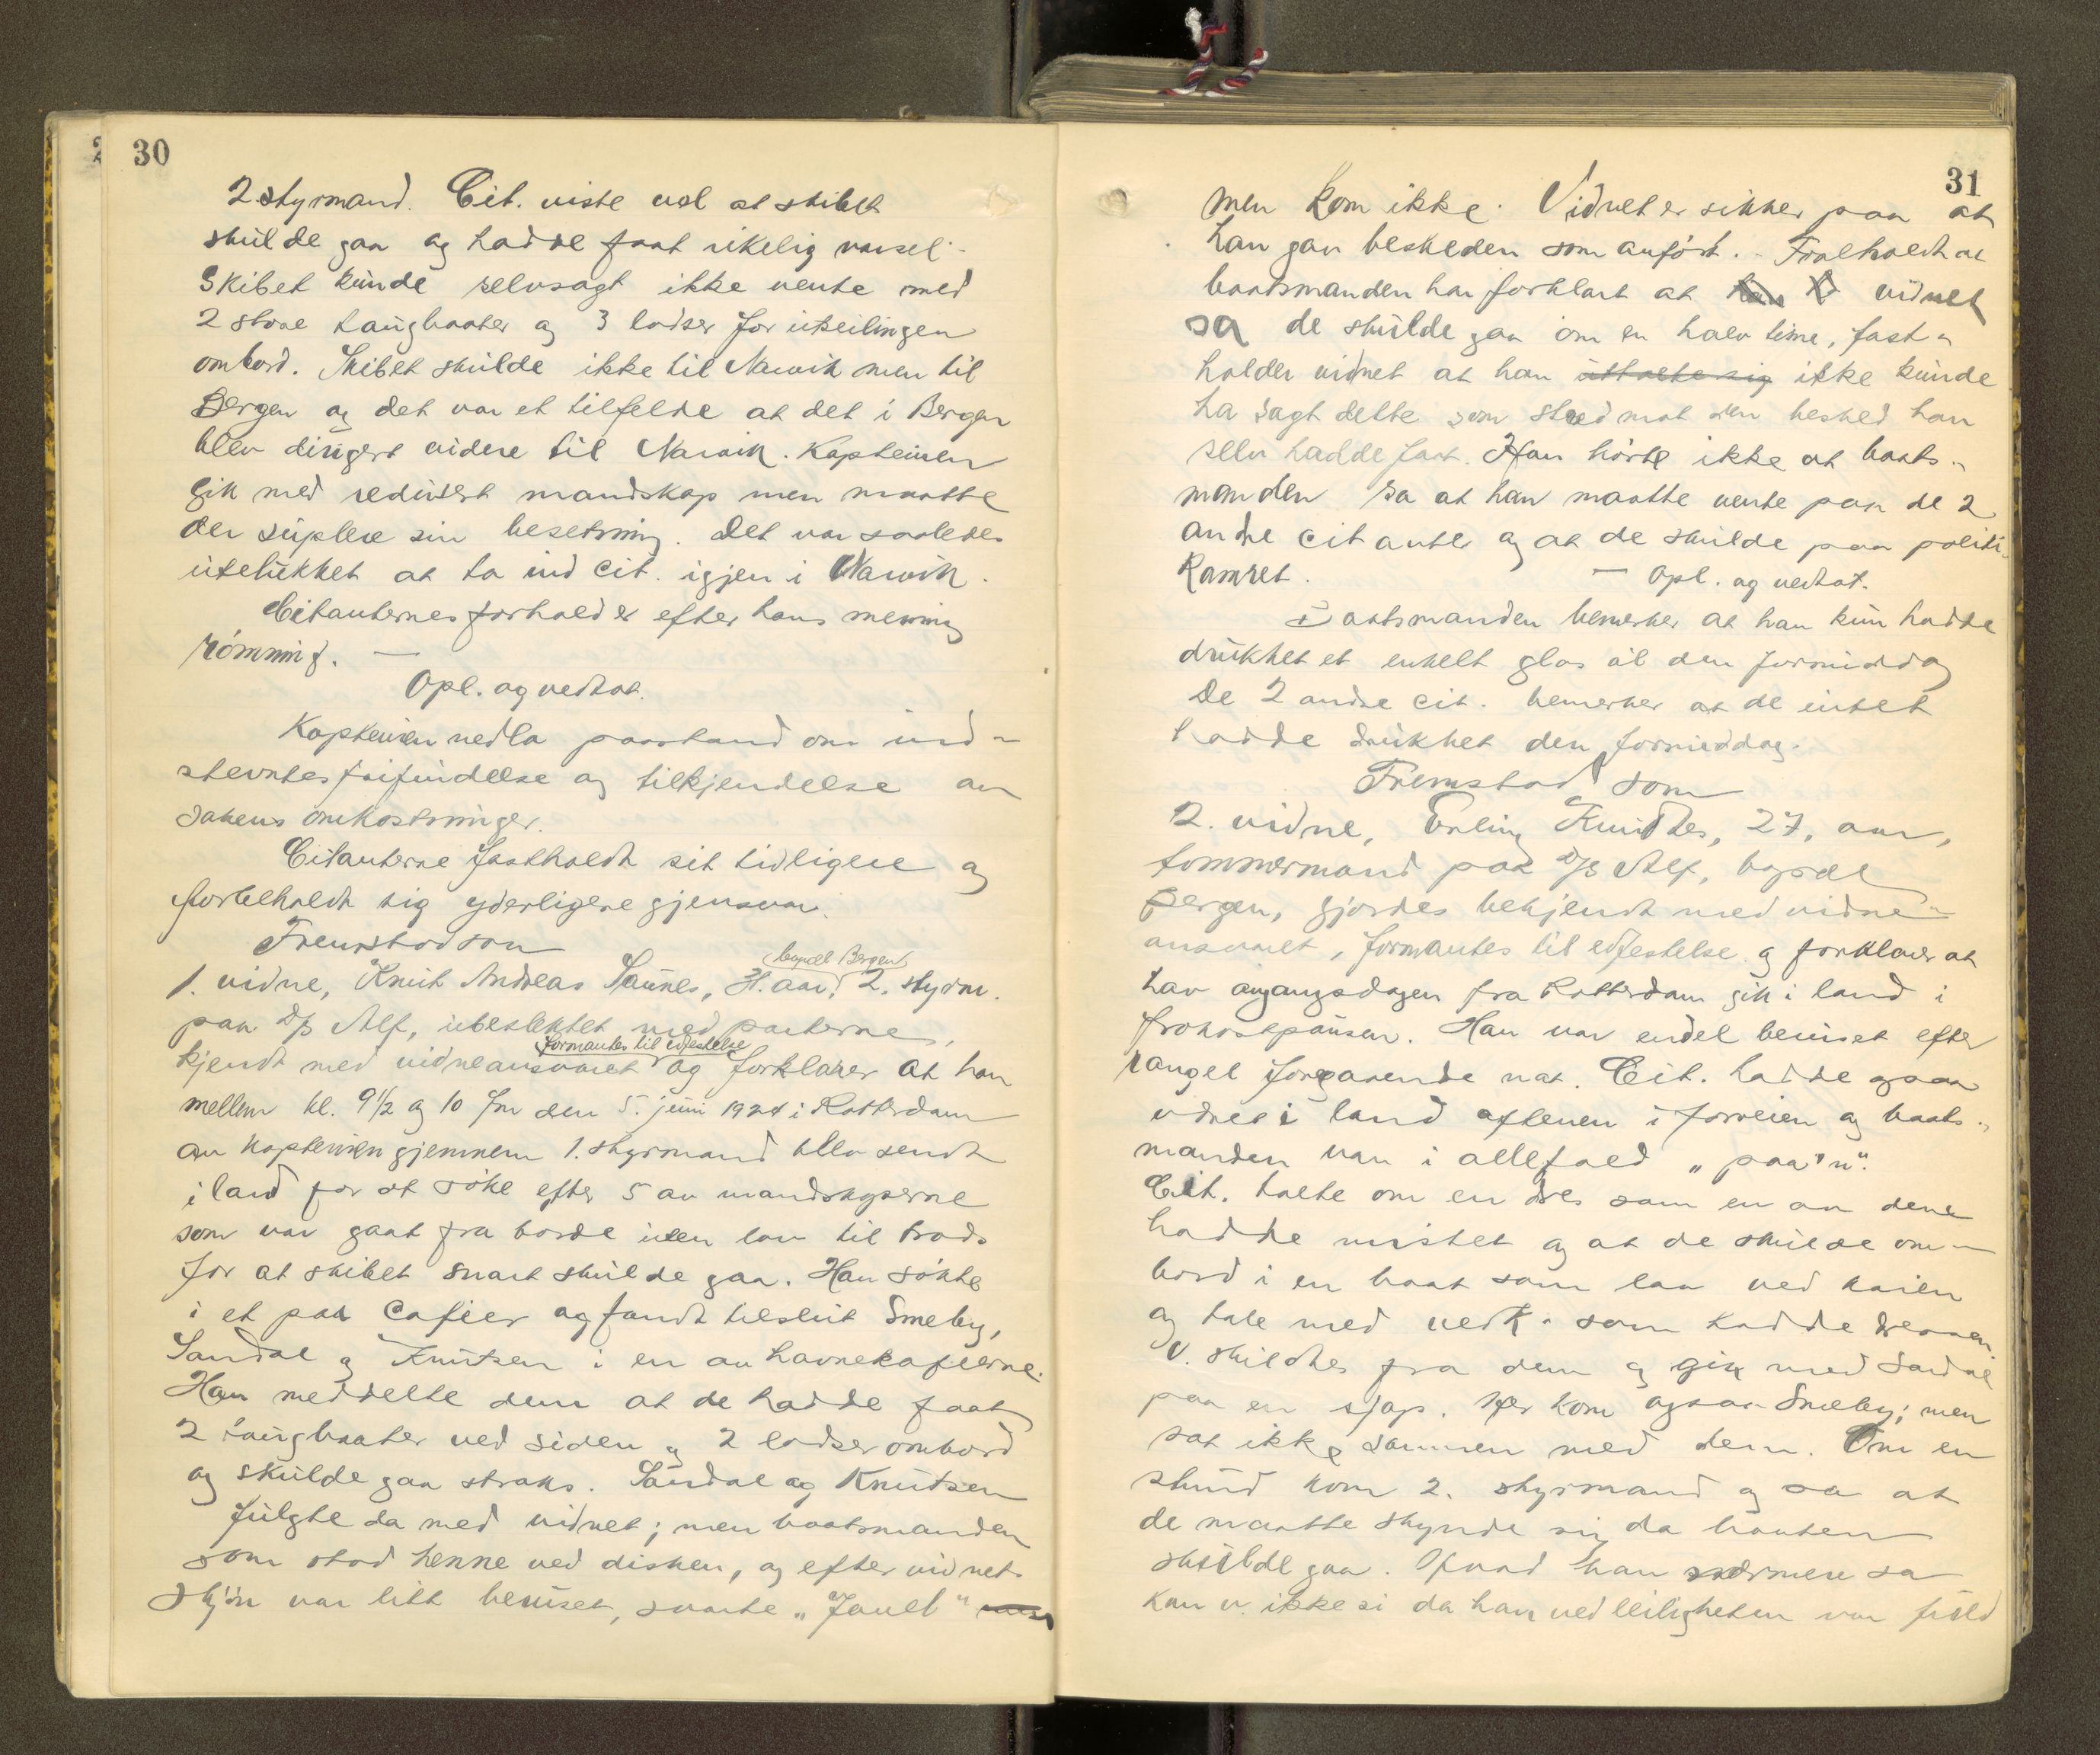 30
2 styrmand. Cit. viste vel at skibet
skulde gaa og hadde faat rikelig varsel.
Skibet kunde selvsagt ikke vente med
2 store taugbaater og 3 lodser for utseilingen
ombord. Skibet skulde ikke til Narvik men til
Bergen og det var et tilfelde at det i Bergen
blev dirigert videre til Narvik. Kapteinen
gik med redusert mandskap men maatte
der suplere sin besetning. Det var saaledes
utelukket at ta ind cit. igjen i Narvik.
Citanternes forhold er efter hans mening
rømning. —
Opl. og vedtat.
Kapteinen nedla paastand om ind-
stevntes frifindelse og tilkjendelse av
sakens omkostninger.
Citanterne fastholdt sit tidligere og
forbeholdt sig yderligere gjensvar.
Fremstod som
bopæl Bergen
1. vidne, Knut Andreas Saunes, 31. aar, 2. styrm.
paa D/S Alf, ubeslektet med parterne,
formantes til edfestelse
kjendt med vidneansvaret og forklarer at han
mellem kl. 9½ og 10 fm den 5. juni 1924 i Rotterdam
av kapteinen gjennem 1. styrmand blev sendt
i land for at søke efter 5 av mandskaperne
som var gaat fra borde uten lov til trods
for at skibet snart skulde gaa. Han søkte
i et par cafeer og fandt tilslut Smeby,
Sandal og Knutsen i en av havnekafeerne.
Han meddelte dem at de hadde faat
2 taugbaater ved siden og 2 lodser ombord
og skulde gaa straks. Sandal og Knutsen
fulgte da med vidnet; men baatsmanden
som stod henne ved disken, og efter vidnets
skjøn var litt beruset, svarte „Javel" men
31
men kom ikke. Vidnet er sikker paa at
han gav beskeden som anført. - Foreholdt at
baatsmanden har forklart at han vidnet
sa de skulde gaa om en halv time, fast-
holder vidnet at han uttalte sig ikke kunde
ha sagt dette som stred mot den besked han
selv hadde faat. Han hørte ikke at baats-
manden sa at han maatte vente paa de 2
andre citanter og at de skulde paa politi-
kamret. — Opl. og vedtat.
Baatsmanden bemerker at han kun hadde
drukket et enkelt glas øl den formiddag
De 2 andre cit. bemerker at de intet
hadde drukket den formiddag.
Fremstod som
2. vidne, Erling Knudtes, 27, aar,
tømmermand paa D/S Alf, bopæl
Bergen, gjordes bekjendt med vidne-
ansvaret, formantes til edfestelse og forklarer at
han avgangsdagen fra Rotterdam gik i land i
frokostpausen. Han var endel beruset efter
rangel foregaaende nat. Cit. hadde ogsaa
vdret i land aftenen i forveien og baats-
manden var i allefald „paa'n".
Cit. talte om en dres som en av dem
hadde mistet og at de skulde om-
bord i en baat som laa ved kaien
og tale med vedk. som hadde dressen.
V. skiltes fra dem og gik med Sandal
paa en sjap. Her kom ogsaa Smeby; men
sat ikke sammen med dem. Om en
stund kom 2. styrmand og sa at
de maatte skynde sig da baaten
skulde gaa. Hvad han nærmere sa
kan v. ikke si da han ved leiligheten var fuld